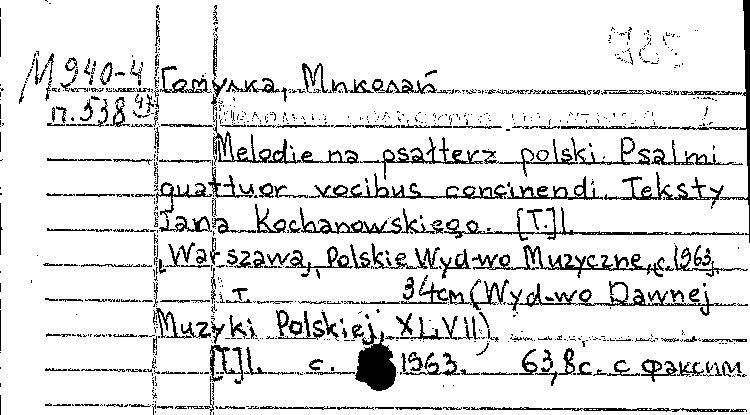 785
М940-4 Гомулка, Миколай
п.538
Мелодии польского псалтыря I
Melodie na psałterz polski. Psalmi
quattuor vocibus concinendi. Teksty
Jana Kochanowskiego. [T.]1.
[Warszawa], Polskie Wyd-wo Muzyczne, c.1963.
т. 34cm (Wyd-wo Dawnej
Muzyki Polskiej, XLVII)
[T.]1. c. 1963. 63,8с. с факсим